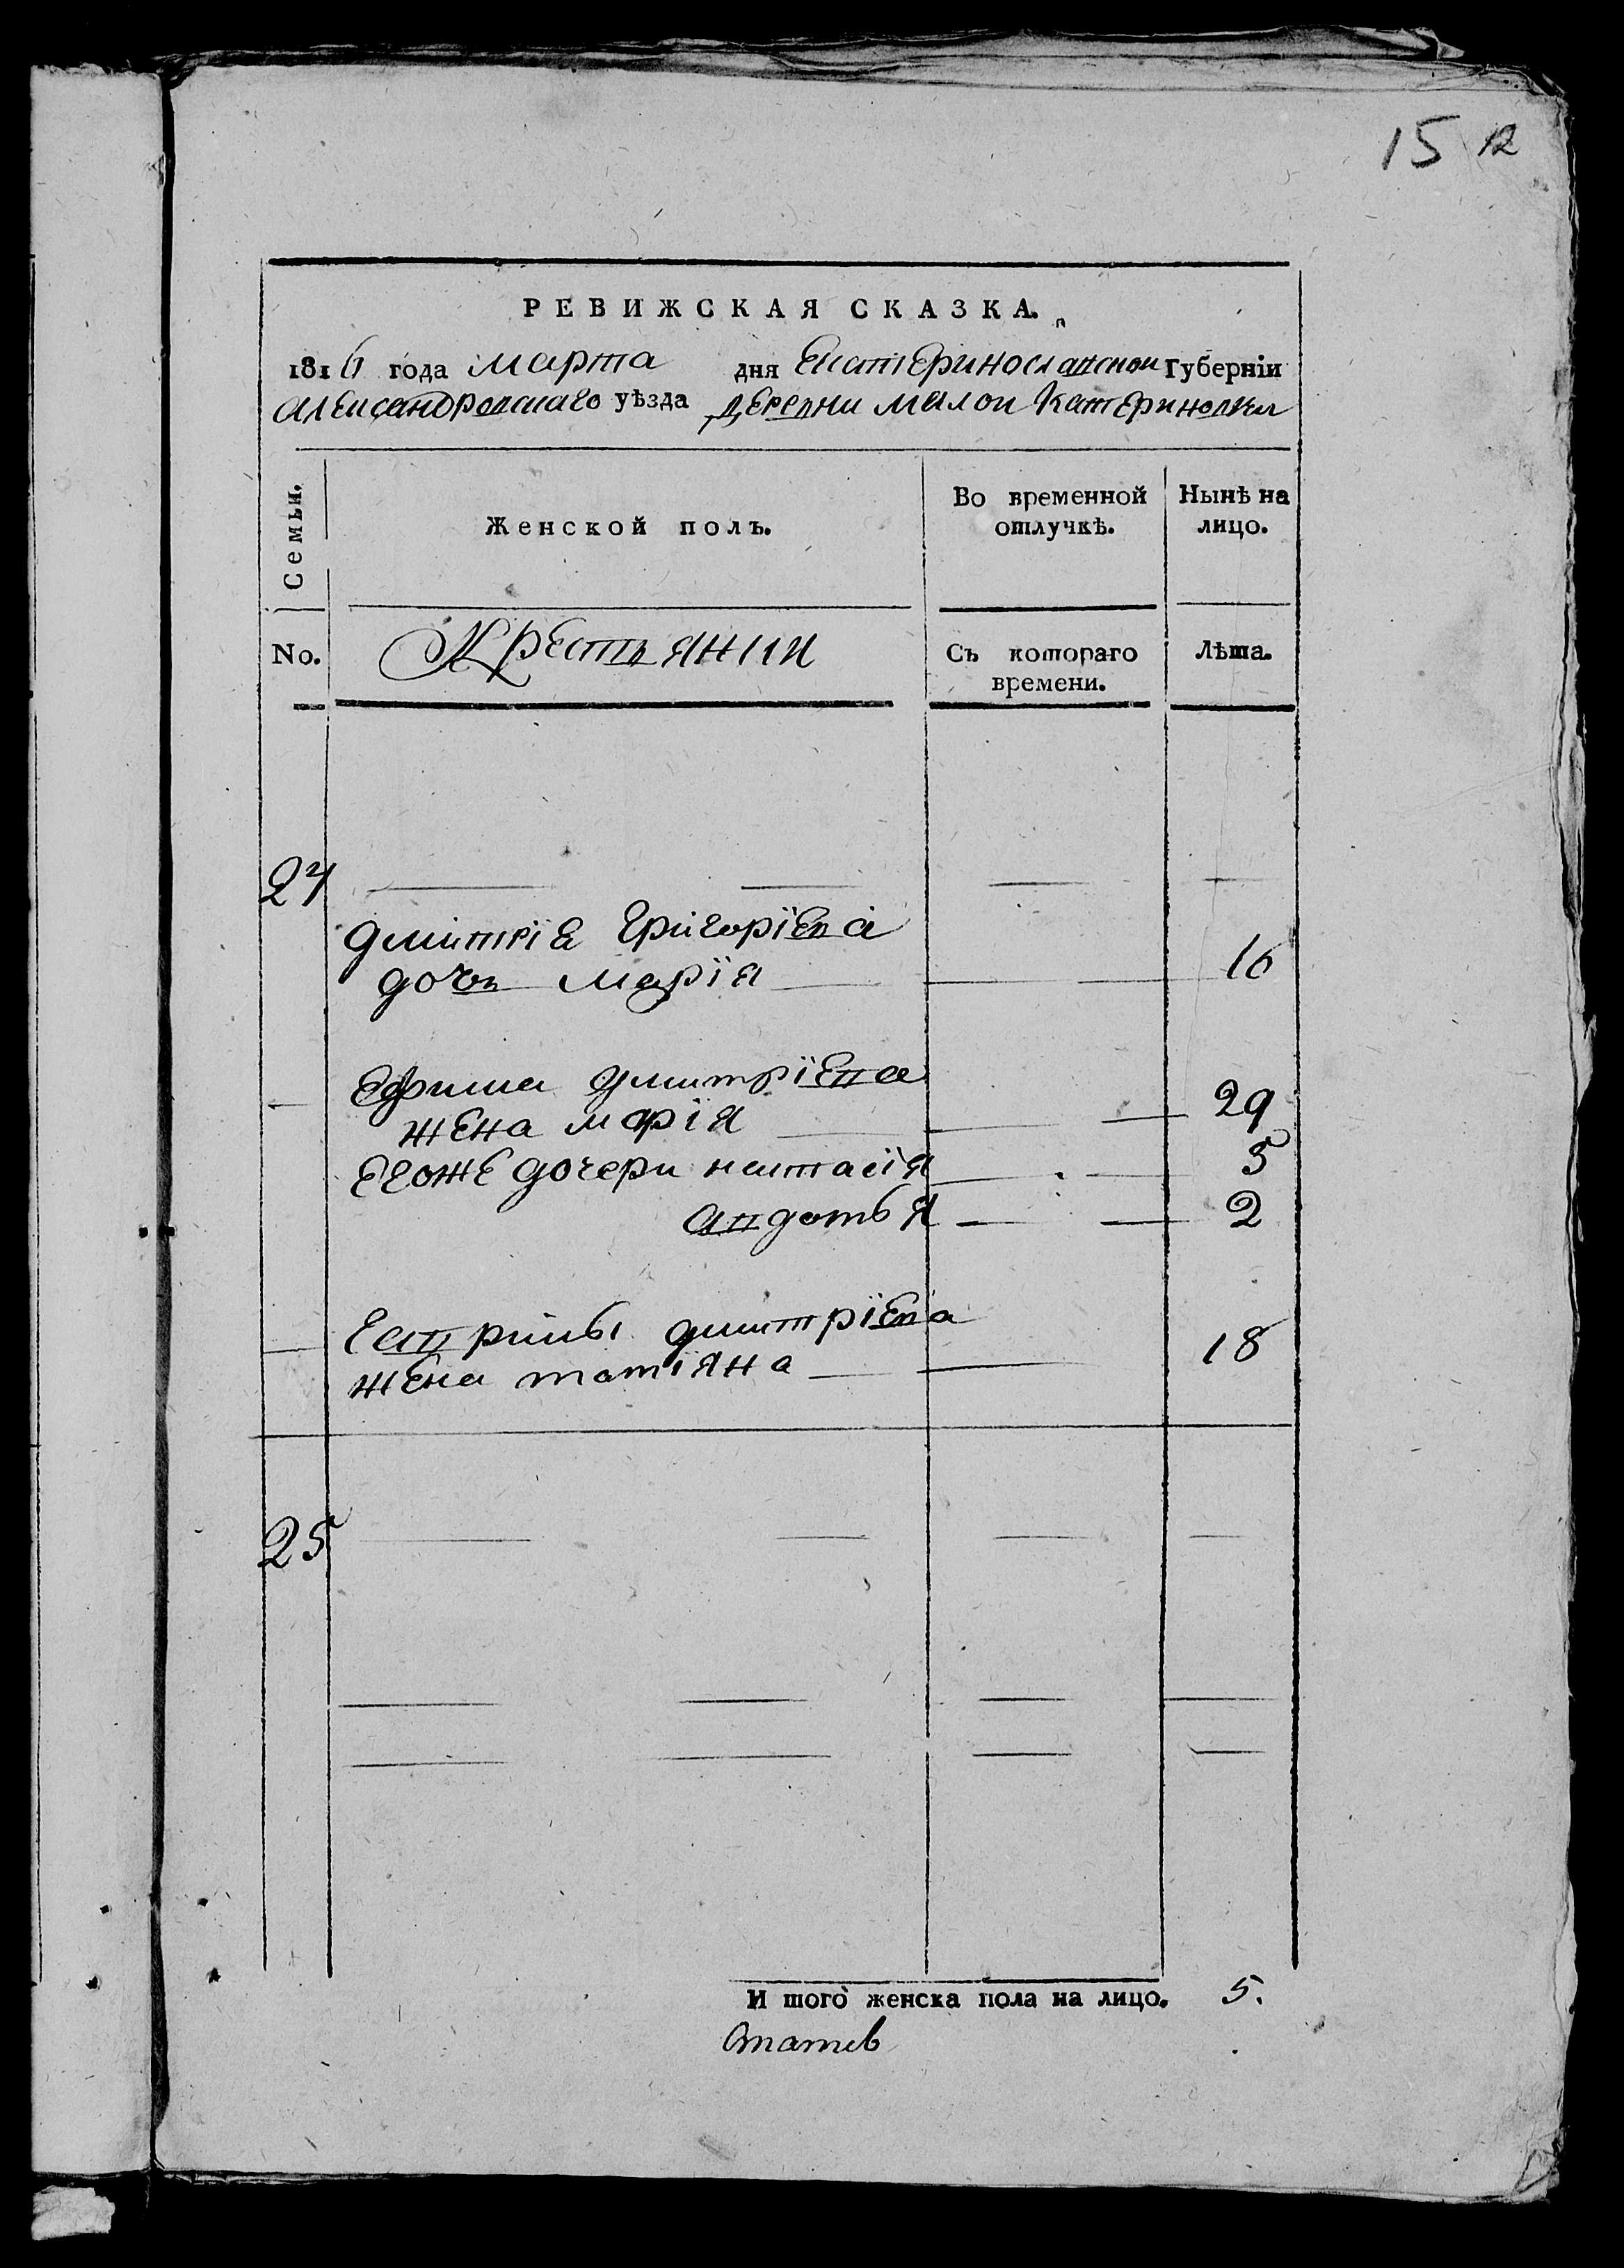 15 12
РЕВИЖСКАЯ СКАЗКА.
1816 года марта дня Екатеринославской Губерніи
александровскаго уѣзда деревни малой Катериновки
Семьи.
Женской полъ.
Во временной отлучкѣ.
Нынѣ на лицо.
No.
Крестьянии
Съ котораго времени.
Лѣта.
24
дмитрія Григоріева
дочь марія 16
Ефима дмитріева
жена марія 29
Егоже дочери настасія 5
авдотья 2
Гаврилы дмитріева
жена татіяна 18
25
И того женска пола на лицо. 5.